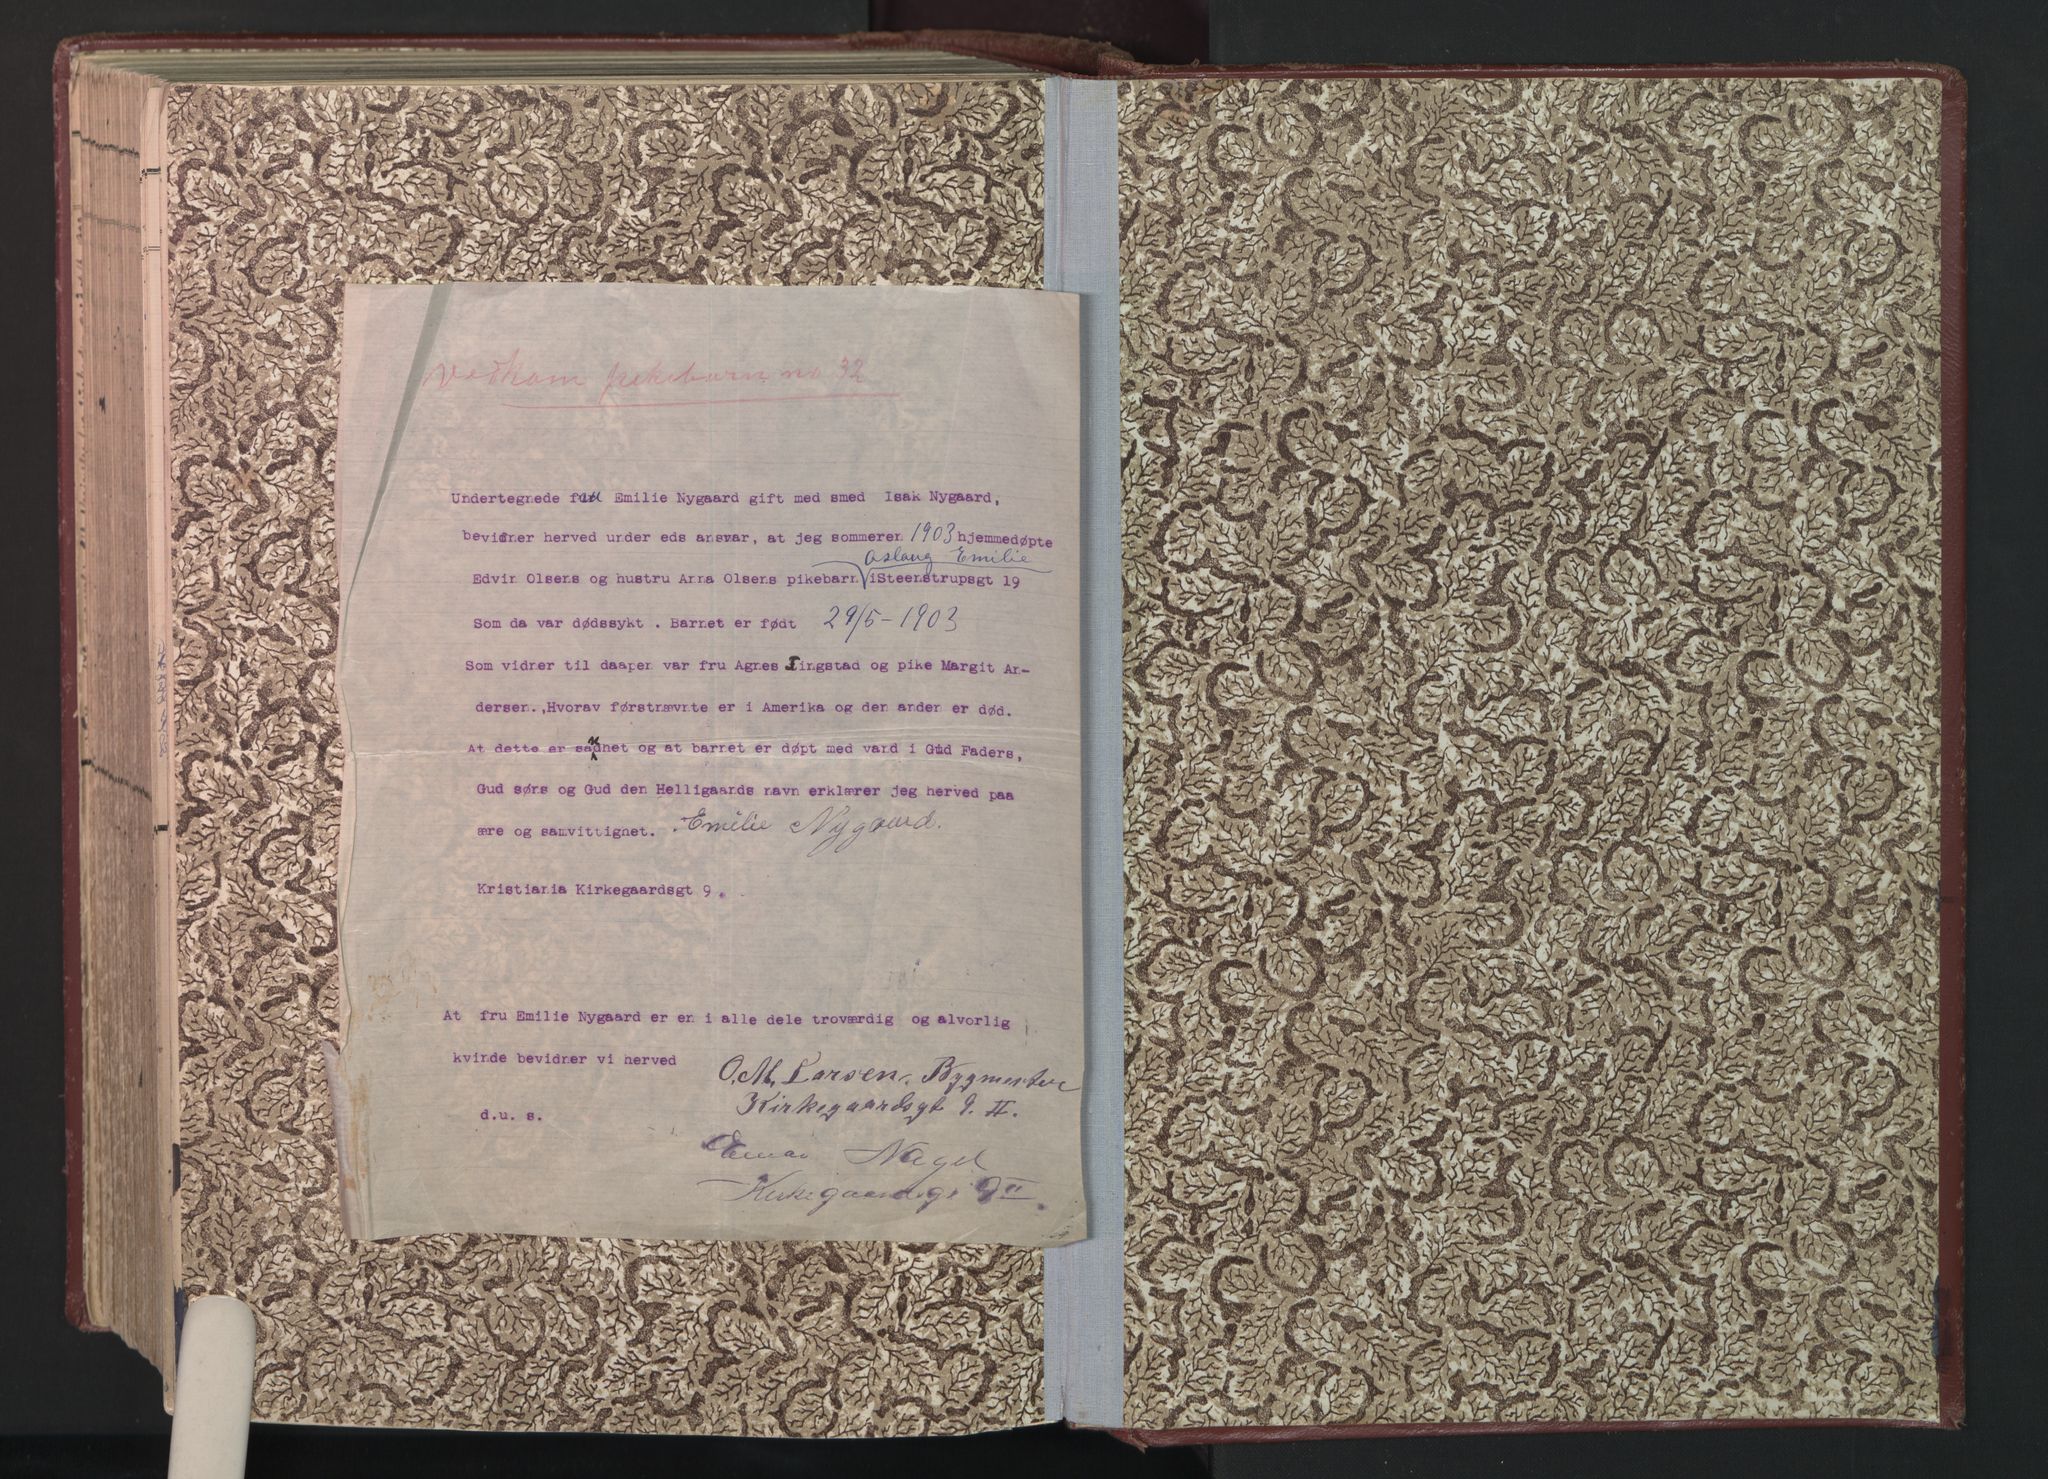 Vedkom pikebarn no 32
Undertegnede fru Emilie Nygaard gift med smed Isak Nygaard,
bevidner herved under eds ansvar, at jeg sommeren 1903 hjemmedøpte
Aslaug Emilie
Edvin Olsens og hustru Anna Olsens pikebarn iSteenstrupsgt 19
Som da var dødssykt . Barnet er født 29/5-1903
Som vidner til daapen var fru Agnes Tingstad og pike Margit An-
dersen.,Hvorav førstnævnte er i Amerika og den anden er død.
At dette er sandhet og at barnet er døpt med vand i Gud Faders,
Gud søns og Gud den Helligaands navn erklærer jeg herved paa
ære og samvittighet. Emilie Nygaard.
Kristiania Kirkegaardsgt 9.
At fru Emilie Nygaard er en i alle dele troværdig og alvorlig
kvinde bevidner vi herved
O.M. Larsen. Bygmester
Kirkegaardsgt 9. II.
d.u. s.
Nagel
Kirkegaardsgt 9 II.